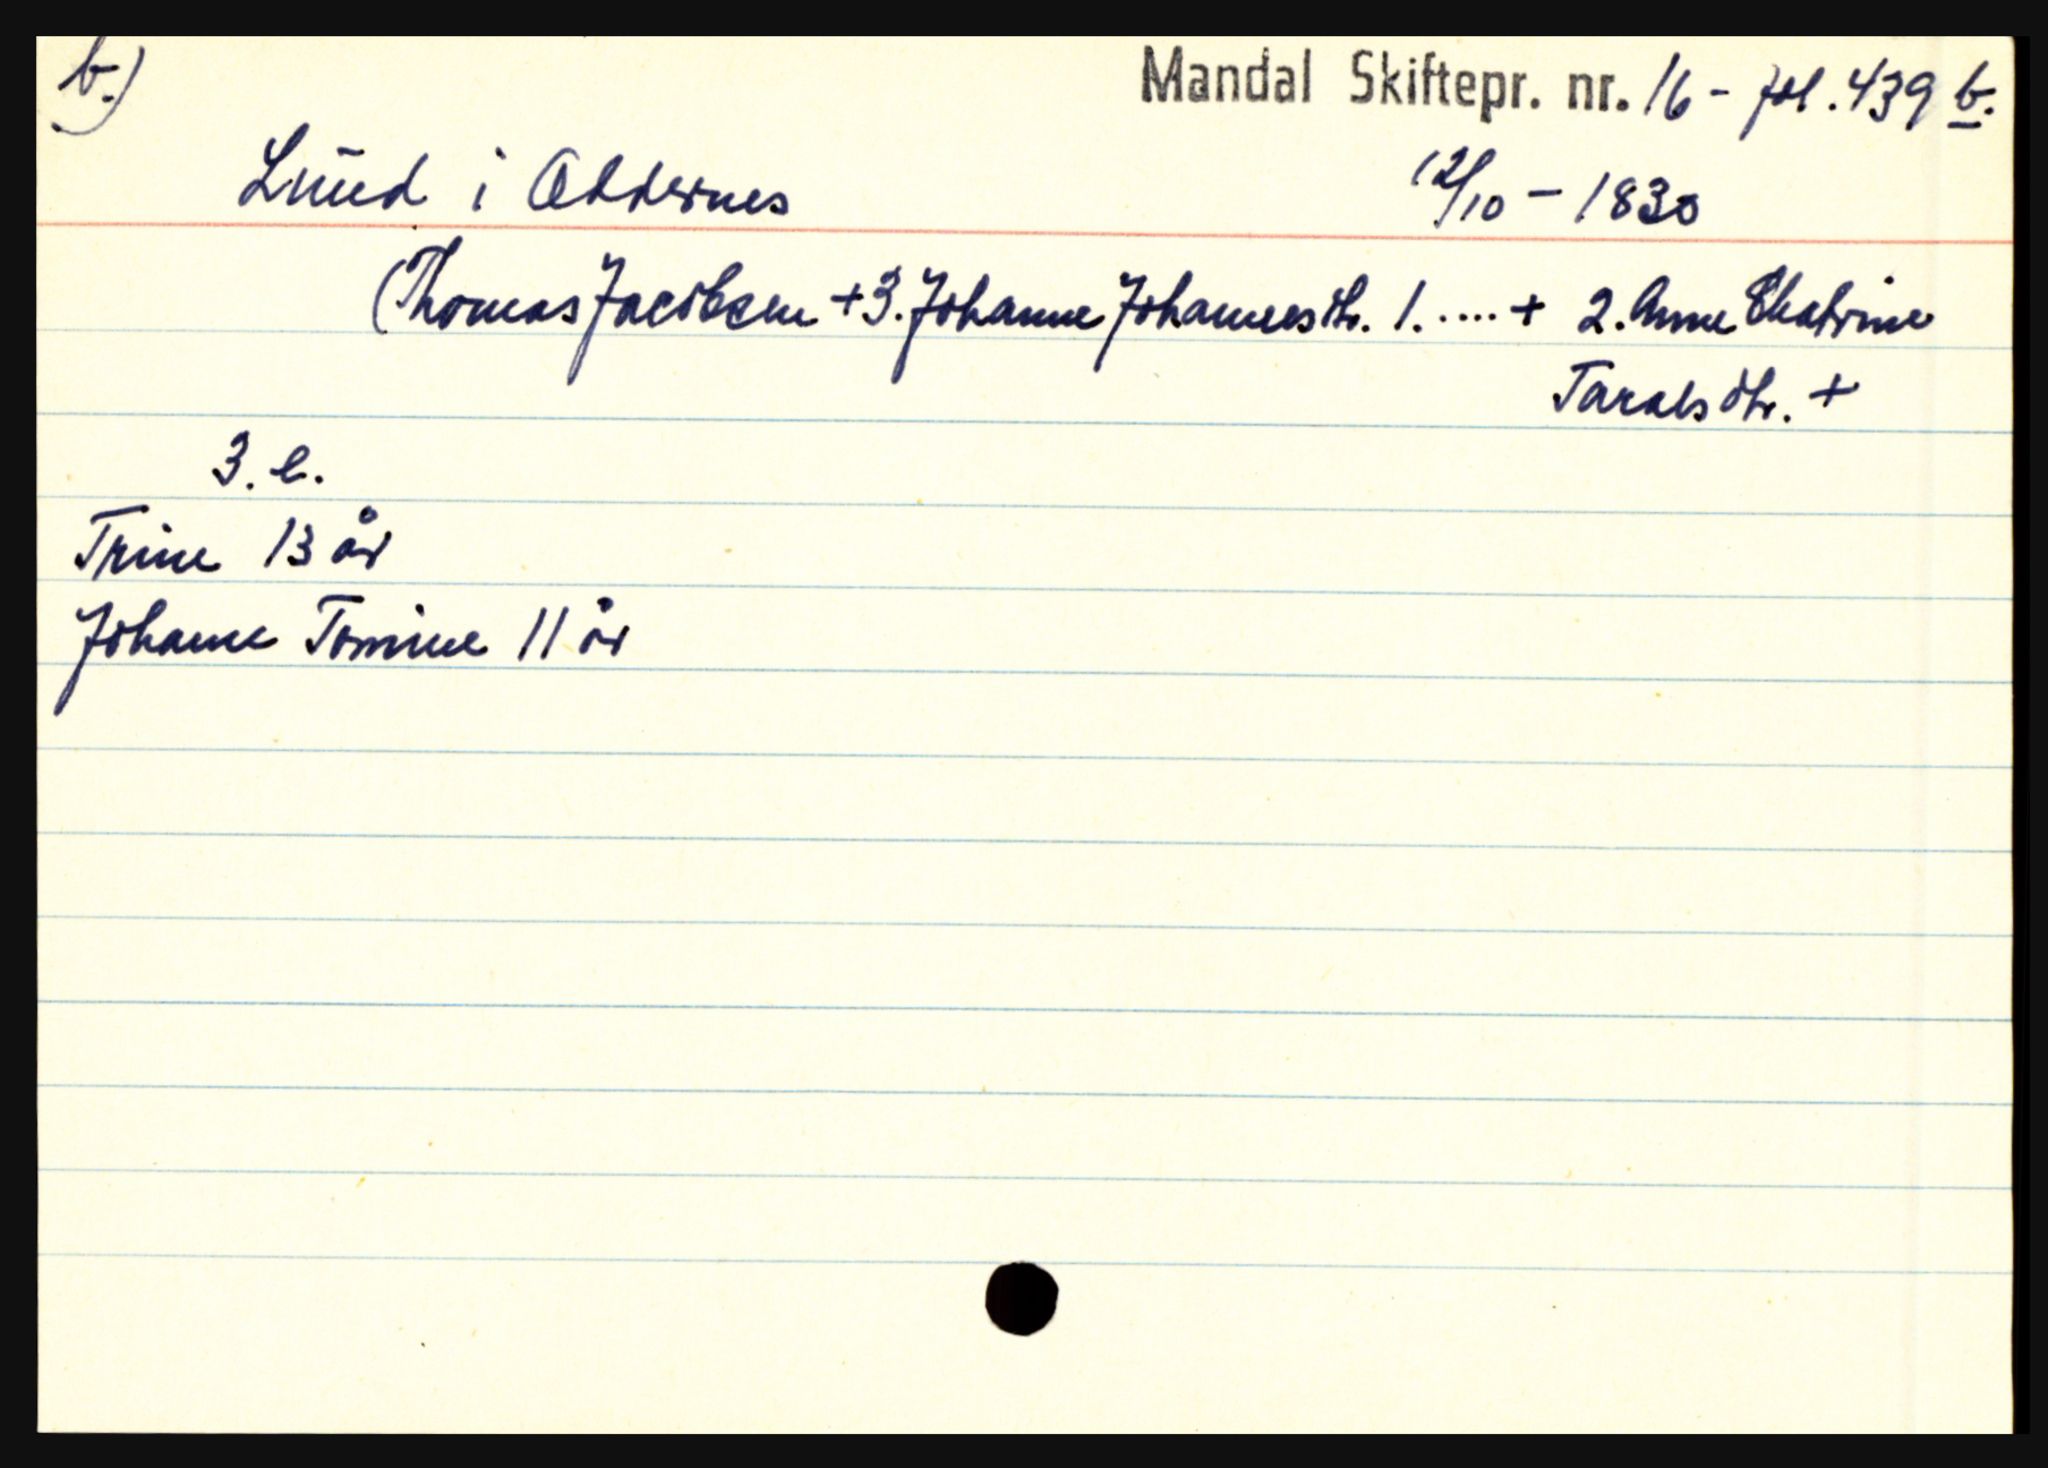 b.)
Mandal Skiftepr. nr. 16 - fol. 439 b.
Lund i Oddernes
12/10 - 1830
(Thomas Jacobsen + 3. Johanne Johannesdtr. 1. .... + 2. Anne Chatrine
Taralsdtr. +
3. e.
Trine 13 år
Johanne Tomine 11 år